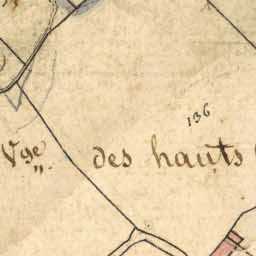 136
Vge des hauts